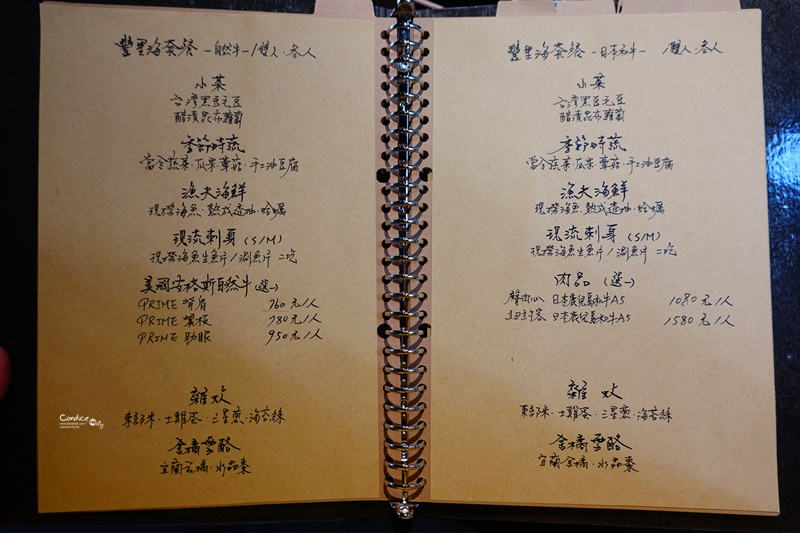 豐里海套餐 -自然牛-/雙人·叁人
小菜
台灣黑豆元豆
醋漬昆布蘿蔔
季節時蔬
當令蔬菜·瓜果蕈菇·手工油豆腐
漁夫海鮮
現撈海魚·熟式透抽·蛤蠣
現流刺身 (S/M)
現撈海魚生魚片/涮魚片 二吃
美國安格斯自然牛 (選一)
PRIME 背肩 760元/人
PRIME 翼板 780元/人
PRIME 肋眼 950元/人
雜炊
東部米·土雞蛋·三星蔥·海苔絲
金橘雪酪
宜蘭金橘·水晶棗
Candice City
豐里海套餐 -日本和牛- /雙人·叁人
小菜
台灣黑豆元豆
醋漬昆布蘿蔔
季節時蔬
當令蔬菜·瓜果蕈菇·手工油豆腐
漁夫海鮮
現撈海魚·熟式透抽·蛤蠣
現流刺身 (S/M)
現撈海魚生魚片/涮魚片 二吃
肉品 (選一)
臀肉心 日本鹿兒島和牛A5 1080元/人
紐約客 日本鹿兒島和牛A5 1580元/人
雜炊
東部米·土雞蛋·三星蔥·海苔絲
金橘雪酪
宜蘭金橘·水晶棗